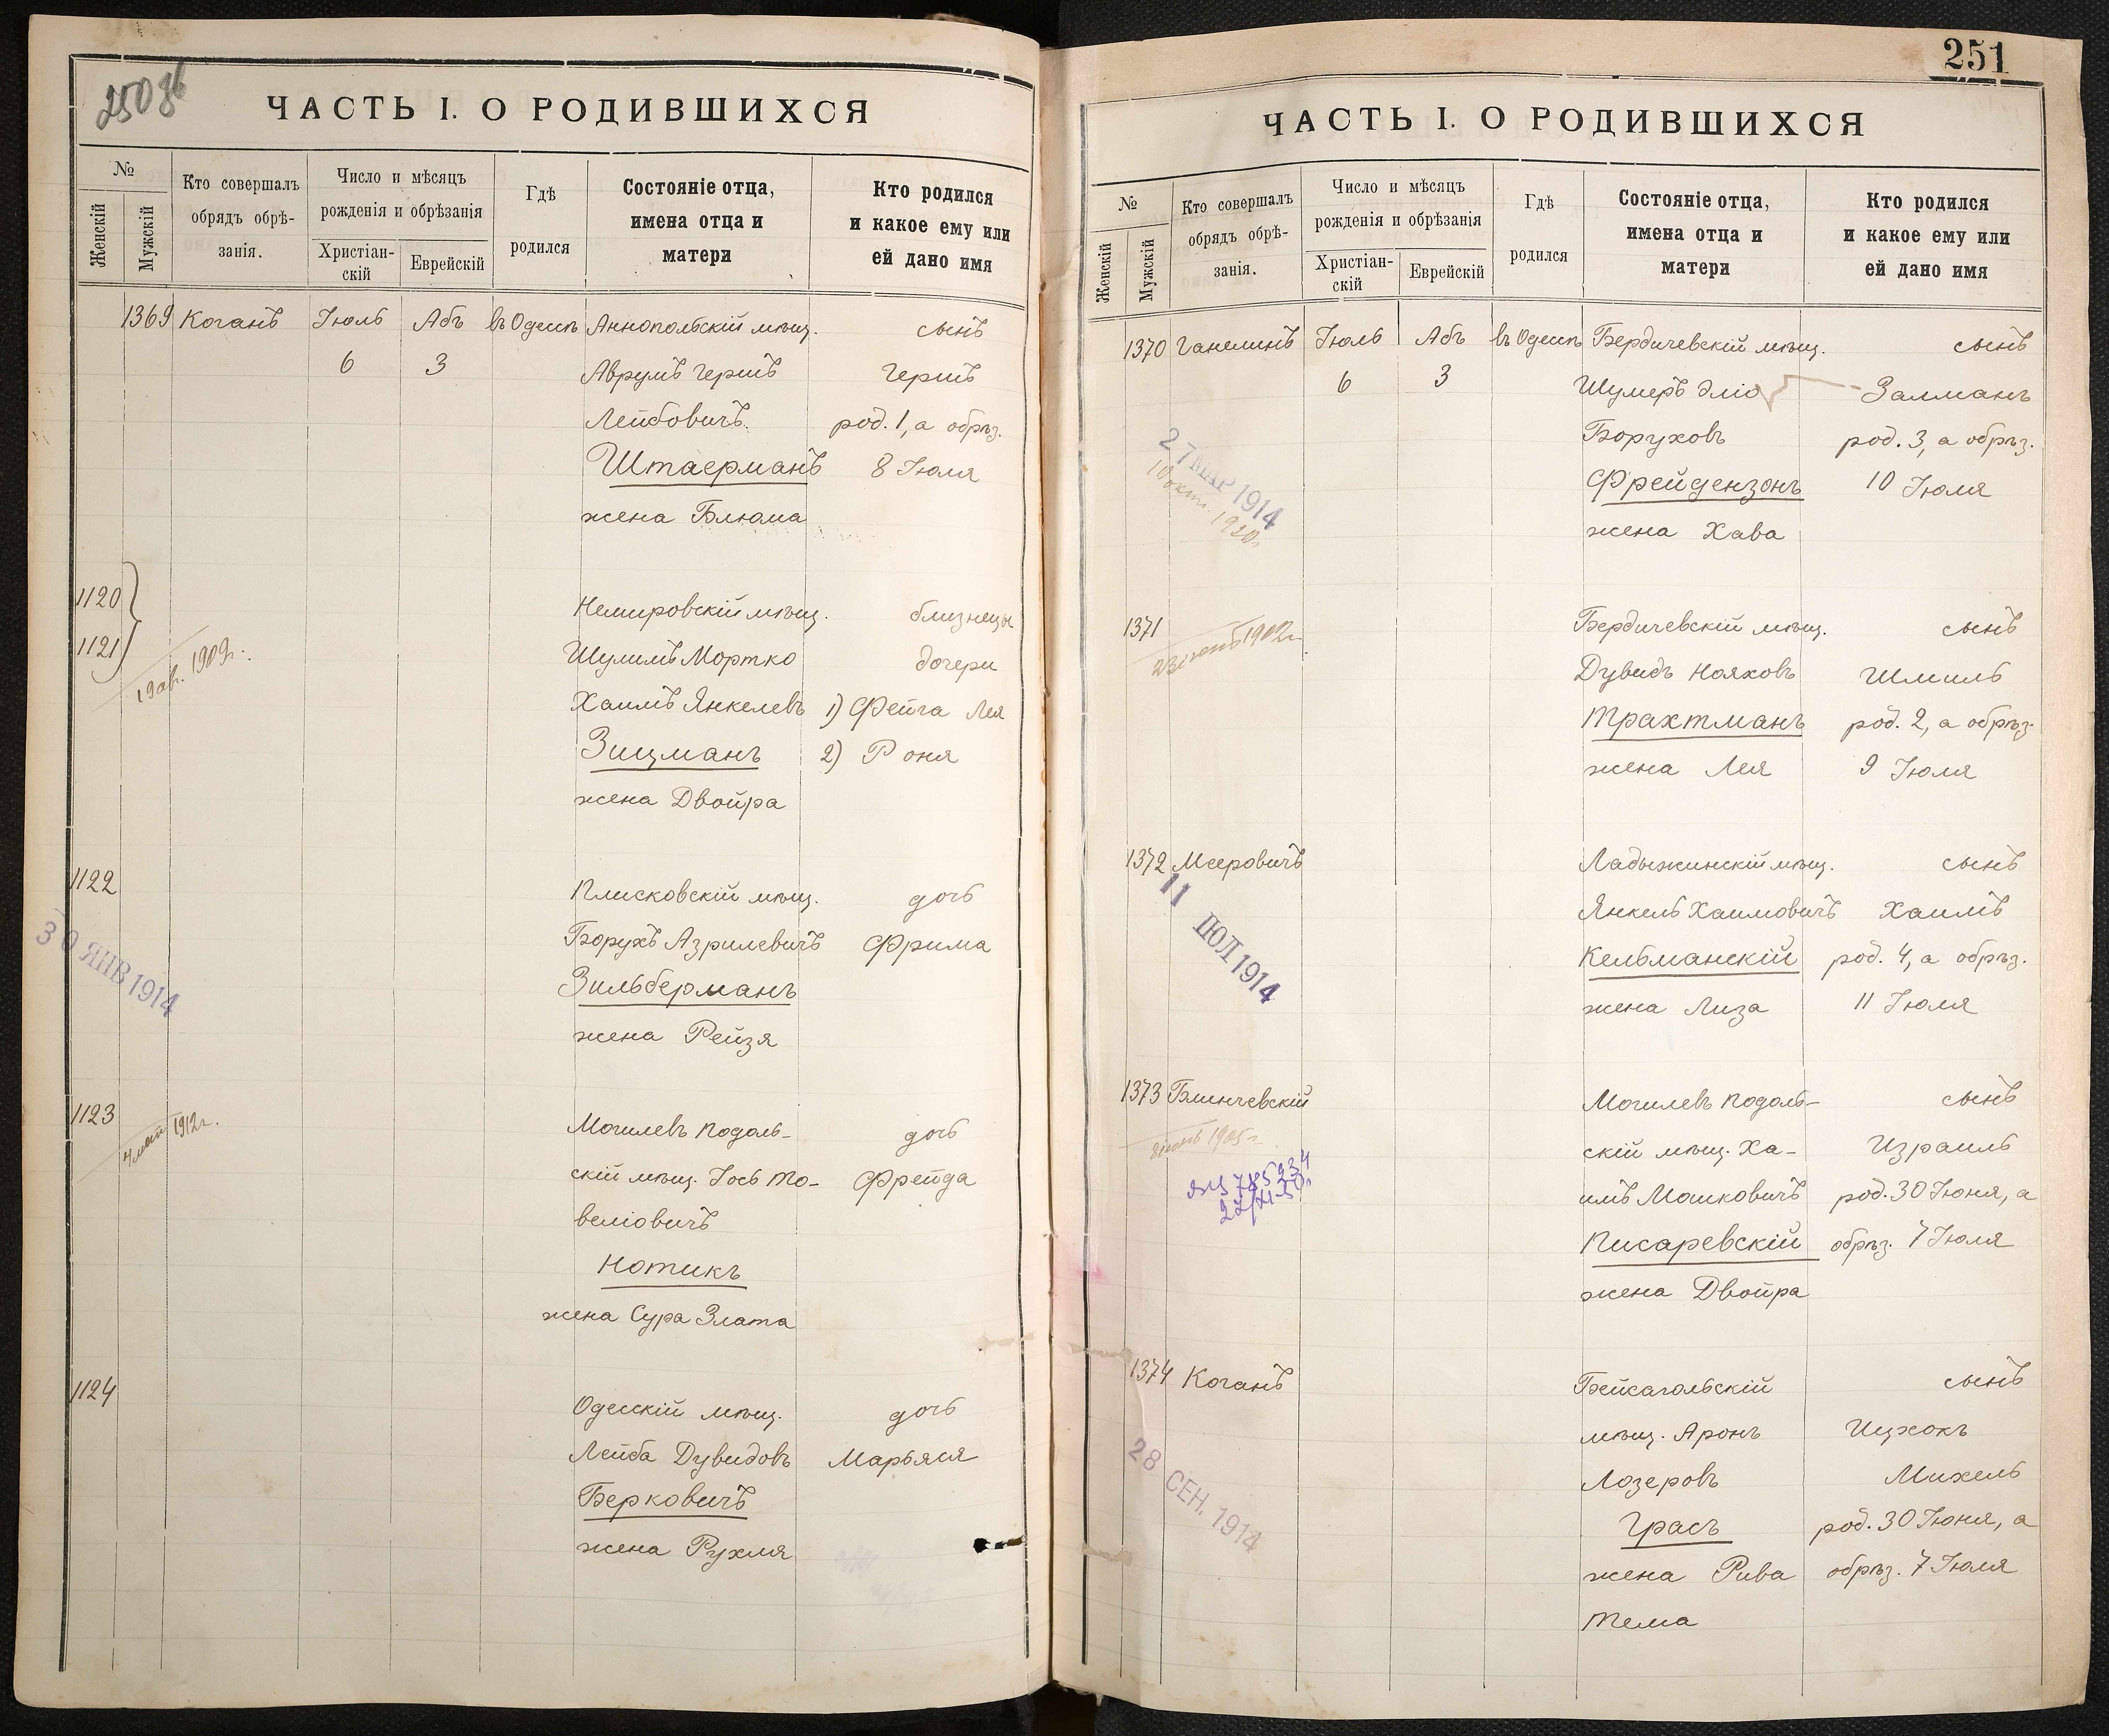 250 об
ЧАСТЬ I. О РОДИВШИХСЯ
№
Женскій
Мужскій
Кто совершалъ
обрядъ обрѣ-
занія.
Число и мѣсяцъ
рожденія и обрѣзанія
Христіан-
скій
Еврейскій
Гдѣ
родился
Состояніе отца,
имена отца и
матери
Кто родился
и какое ему или
ей дано имя
1369 Коганъ Іюль Абъ въ Одессѣ Аннопольскій мѣщ. сынъ
6 3 Аврумъ Гершъ Гершъ
Лейбовичъ род. 1, а обрѣз.
Штаерманъ 8 Іюля
жена Блюма
1120 Немировскій мѣщ. близнецы
1121 Шулимъ Мортко дочери
19 ав. 1909 г.
Хаимъ Янкелевъ 1) Фейга Лея
Зицманъ 2) Роня
жена Двойра
1122 Плисковскій мѣщ. дочь
Борухъ Азрилевичъ Фрима
30 ЯНВ 1914
Зильберманъ
жена Рейзя
1123 Могилевъ Подоль- дочь
4 май 1912 г.
скій мѣщ. Іось То- Фрейда
веліовичъ
Нотикъ
жена Сура Злата
1124 Одесскій мѣщ. дочь
Лейба Дувидовъ Марьяся
Берковичъ
жена Рухля
251
ЧАСТЬ I. О РОДИВШИХСЯ
№
Женскій
Мужскій
Кто совершалъ
обрядъ обрѣ-
занія.
Число и мѣсяцъ
рожденія и обрѣзанія
Христіан-
скій
Еврейскій
Гдѣ
родился
Состояніе отца,
имена отца и
матери
Кто родился
и какое ему или
ей дано имя
1370 Ганелинъ Іюль Абъ въ Одессѣ Бердичевскій мѣщ. сынъ
6 3 Шумеръ Эліо Залманъ
Боруховъ род. 3, а обрѣз.
27 МАР 1914
10 окт. 1920 г.
Фрейдензонъ 10 Іюля
жена Хава
1371 Бердичевскій мѣщ. сынъ
23 1902 г.
Дувидъ Нояховъ Шмиль
Трахтманъ род. 2, а обрѣз.
жена Лея 9 Іюля
1372 Мееровичъ Ладыжинскій мѣщ. сынъ
11 ІЮЛ 1914
Янкель Хаимовичъ Хаимъ
Кельманскій род. 4, а обрѣз.
жена Лиза 11 Іюля
1373 Блинчевскій Могилевъ Подоль- сынъ
1905 г.
скій мѣщ. Ха- Израиль
имъ Мошковичъ род. 30 Іюня, а
Писаревскій обрѣз. 7 Іюля
жена Двойра
1374 Коганъ Бейсагольскій сынъ
мѣщ. Аронъ Ицхокъ
28 СЕН. 1914
Лозеровъ Михель
Грасъ род. 30 Іюня, а
жена Рива обрѣз. 7 Іюля
Тема